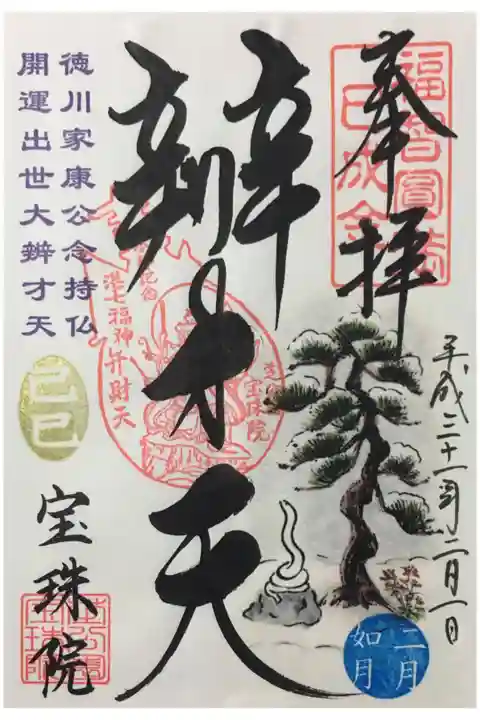 奉拝
福智圓満
巳成金
平成三十一年二月一日
辨才天
港七福神弁財天
宝珠院
徳川家康公念持仏
開運出世大辨才天
己巳
宝珠院
二月
如月